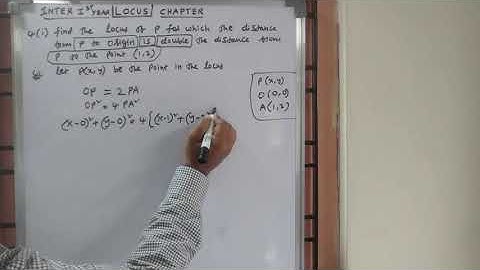 INTER Ist YEAR LOCUS CHAPTER
4(i) find the locus of P for which the distance
from P to origin is double the distance from
P to the point (1,2)
Let P(x,y) be the point in the locus
OP = 2PA
OP² = 4PA²
(x-0)²+(y-0)² = 4[(x-1)²+(y-
P(x,y)
O(0,0)
A(1,2)